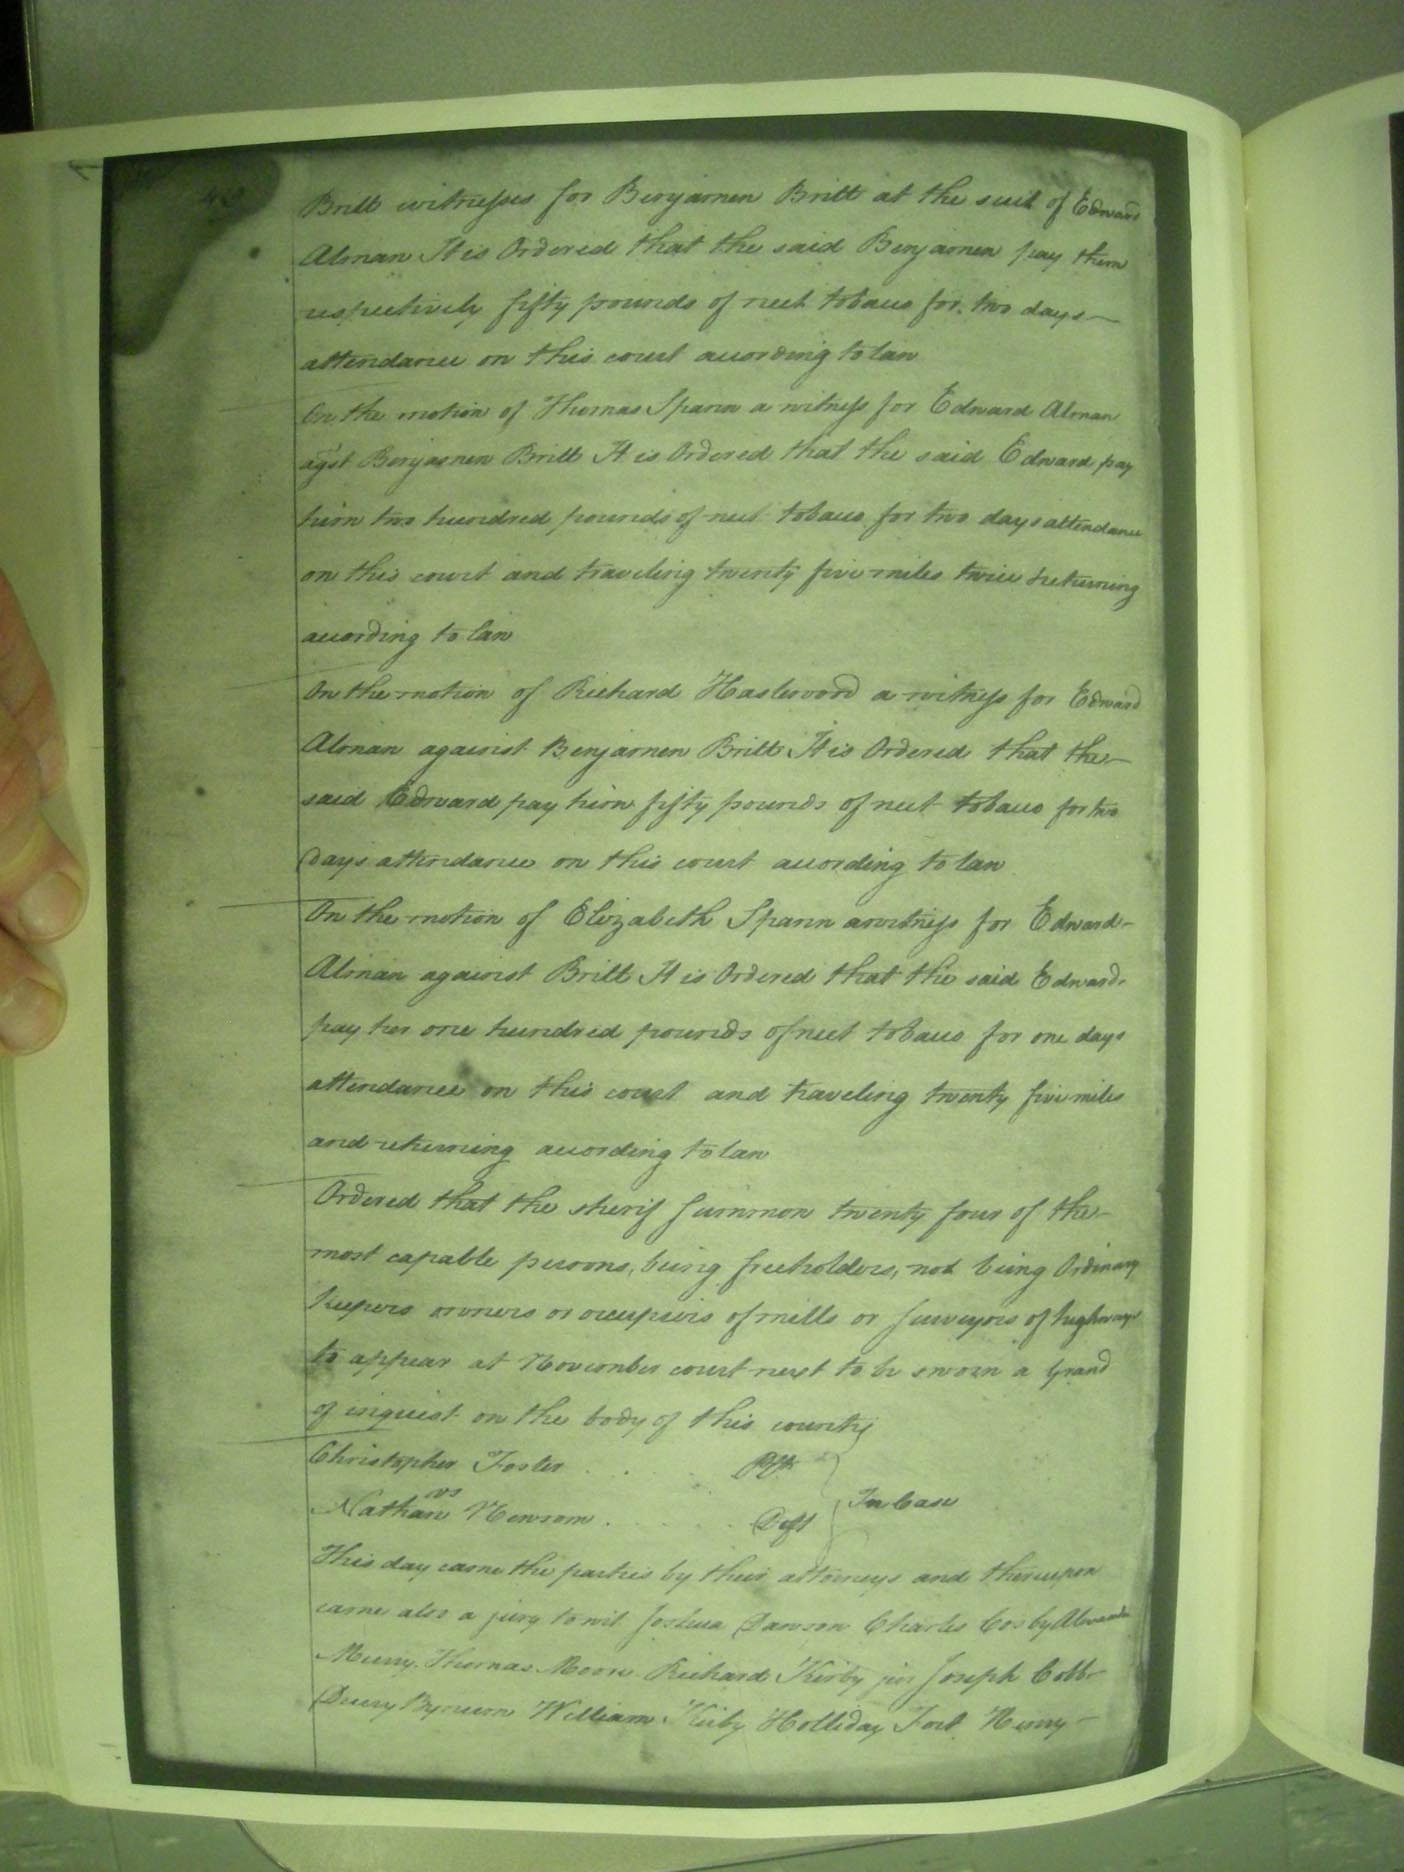 Britt witnesses for Benjamen Britt at the suit of Edward
Alman It is Ordered that the said Benjamen pay them
respectively fifty pounds of neet tobaco for two days
attendance on this court acording to law
On the motion of Thomas Spann a witness for Edward Alman
agst Benjamen Britt It is Ordered that the said Edward pay
him two hundred pounds of neet tobaco for two days attendance
on this court and traveling twenty five miles twice & returning
acording to law
On the motion of Richard Haslewood a witness for Edward
Alman against Benjamen Britt It is Ordered that the
said Edward pay him fifty pounds of neet tobaco for two
days attendance on this court acording to law
On the motion of Elizabeth Spann a witness for Edward
Alman against Britt It is Ordered that the said Edward
pay her one hundred pounds of neet tobaco for one days
attendance on this court and traveling twenty five miles
and returning acording to law
Ordered that the sherif summon twenty four of the
most capable persons, being freeholders, not being Ordinary
keepers owners or occupiers of mills or surveyors of highways
to appear at November court next to be sworn a Grand
of inquist on the body of this county
Christopher Foster . . . Plt
vs
In Case
Nathan Newsom . . . . Deft
This day came the parties by their attorneys and thereupon
came also a jury to wit Joshua Dawson Charles Cosby
Murry Thomas Moon Richard Kirby jur Joseph Cobb
Drury Bynum William Kirby Holliday Fort Henry